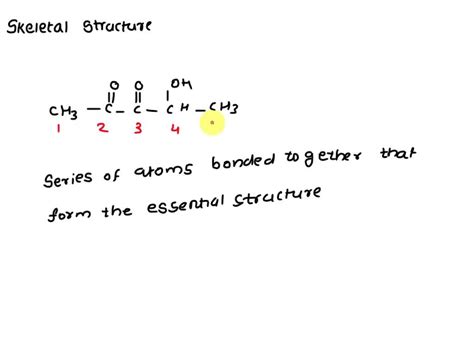 Skeletal Structure
O O OH
|| || |
CH3 - C - C - CH - CH3
1 2 3 4
Series of atoms bonded together that
form the essential structure